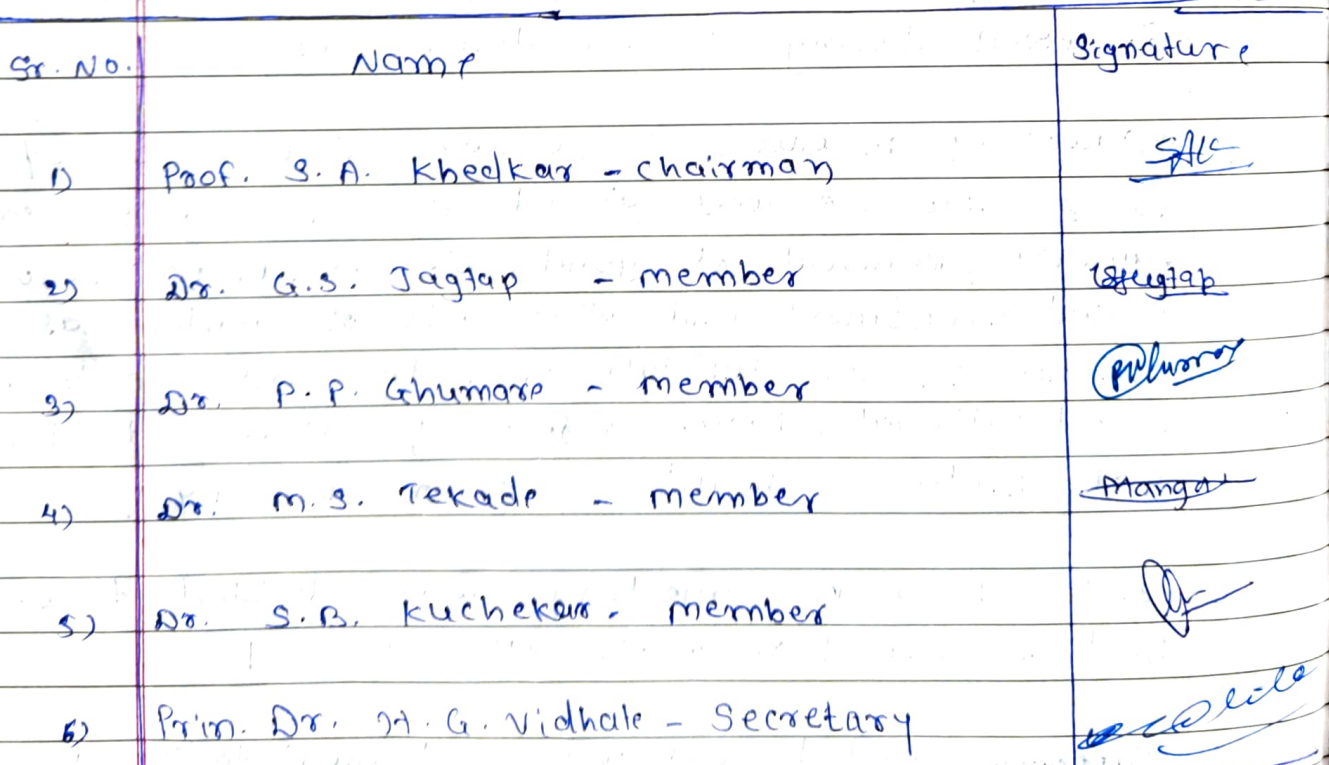 Sr. No. Name Signature
1) Prof. S. A. Khedkar - Chairman SAK
2) Dr. G.S. Jagtap - member Jagtap
3) Dr. P. P. Ghumare - member
4) Dr. M. S. Tekade - member Manga
5) Dr. S. B. Kuchekar - member
6) Prin. Dr. H. G. Vidhale - Secretary